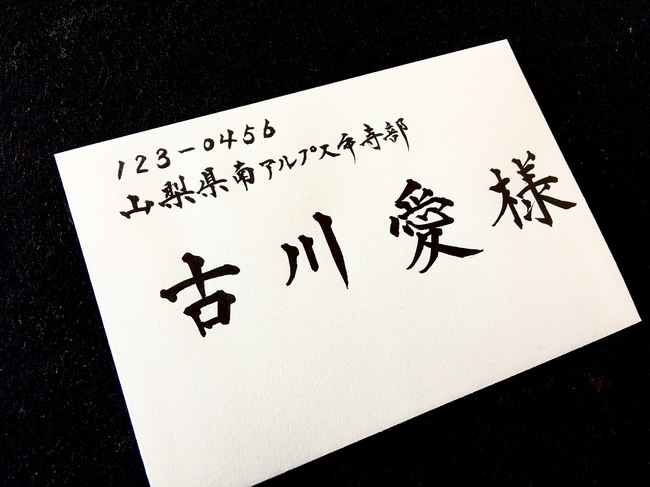 123-0456
山梨県南アルプス市寺部
古川愛様